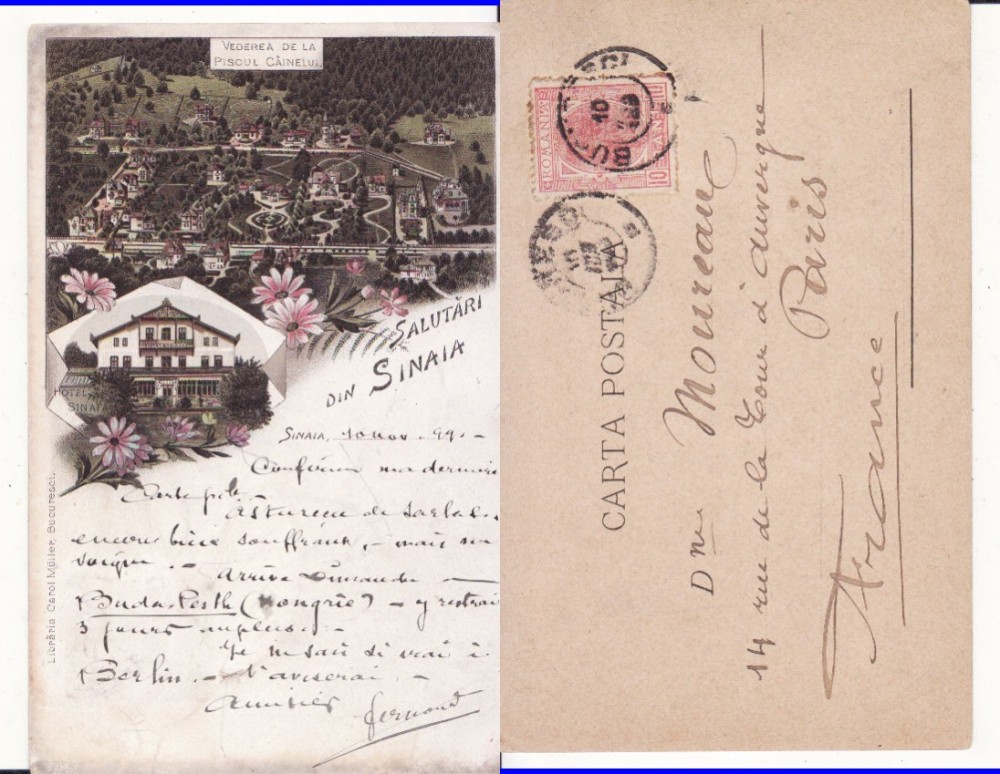 VEDEREA DE LA
PISCUL CÂINELUI.
SALUTĂRI
DIN SINAIA
HOTEL
SINAIA
SINAIA, 10 nov. 99. -
Confirme ma dernière
Carte ple -
encore bien souffrant, - mais me
soigne. - Arrive Dimanche -
Buda-Pesth (Hongrie) - y restrai
3 jours au plus. -
Je ne sais si irai à
Berlin. - T'aviserai. -
Amitiés
Fernand
Librăria Carol Müller, Bucuresci.
CARTA POSTALA
ROMANIA
10
BUCURESCI
10
Dnu Moureau
14 rue de la Tour d'auvergne
Paris
France